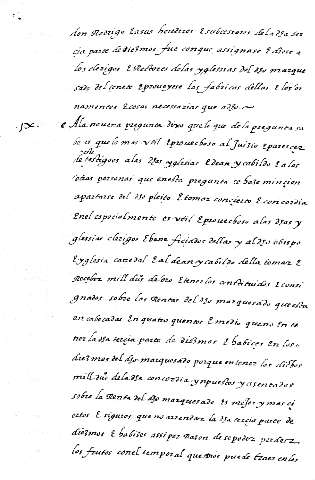 don Rodrigo E a sus herederos E subcessores de la dha ter
cia parte de diezmos fue con que assignase E diese a
los clerigos E Retores de las yglesias del dho marque
sado del cenete E proveyese las fabricas dellas E los or
namentos E cosas necessarias que a dho
IX. A la novena pregunta dixo que lo que de la pregunta sa
be es que lo mas util E provechoso al Juisio E parescer
deste testigo es a las dhas yglesias E dean y cabildo E a los
otras personas que en esta pregunta se haze mincion
apartarse del dho pleito E tomar concierto E concordia
En el especialmente es util E provechoso a las dhas y
glesias clerigos E beneficiados dellas y al dho obispo
E yglesia catredal E al dean y cabildo della tomar E
Recebir mill dus de oro E tenerlos constituidos E consi
gnados sobre las Rentas del dho marquesado que esta
encabeçadas En quatro quentos E medio que no En te
ner la dha tercia parte de diezmos E habices En los
diezmos del dho marquesado porque en tener los dichos
mill dus de la dha concordia ynpuestos y asentados
sobre la Renta del dho marquesado es mejor y mas ci
ertos E siguros que no arrendar la dha tercia parte de
diezmos E habices assi por Razon de se poder perder
los frutos con el temporal que dios puede traer en los